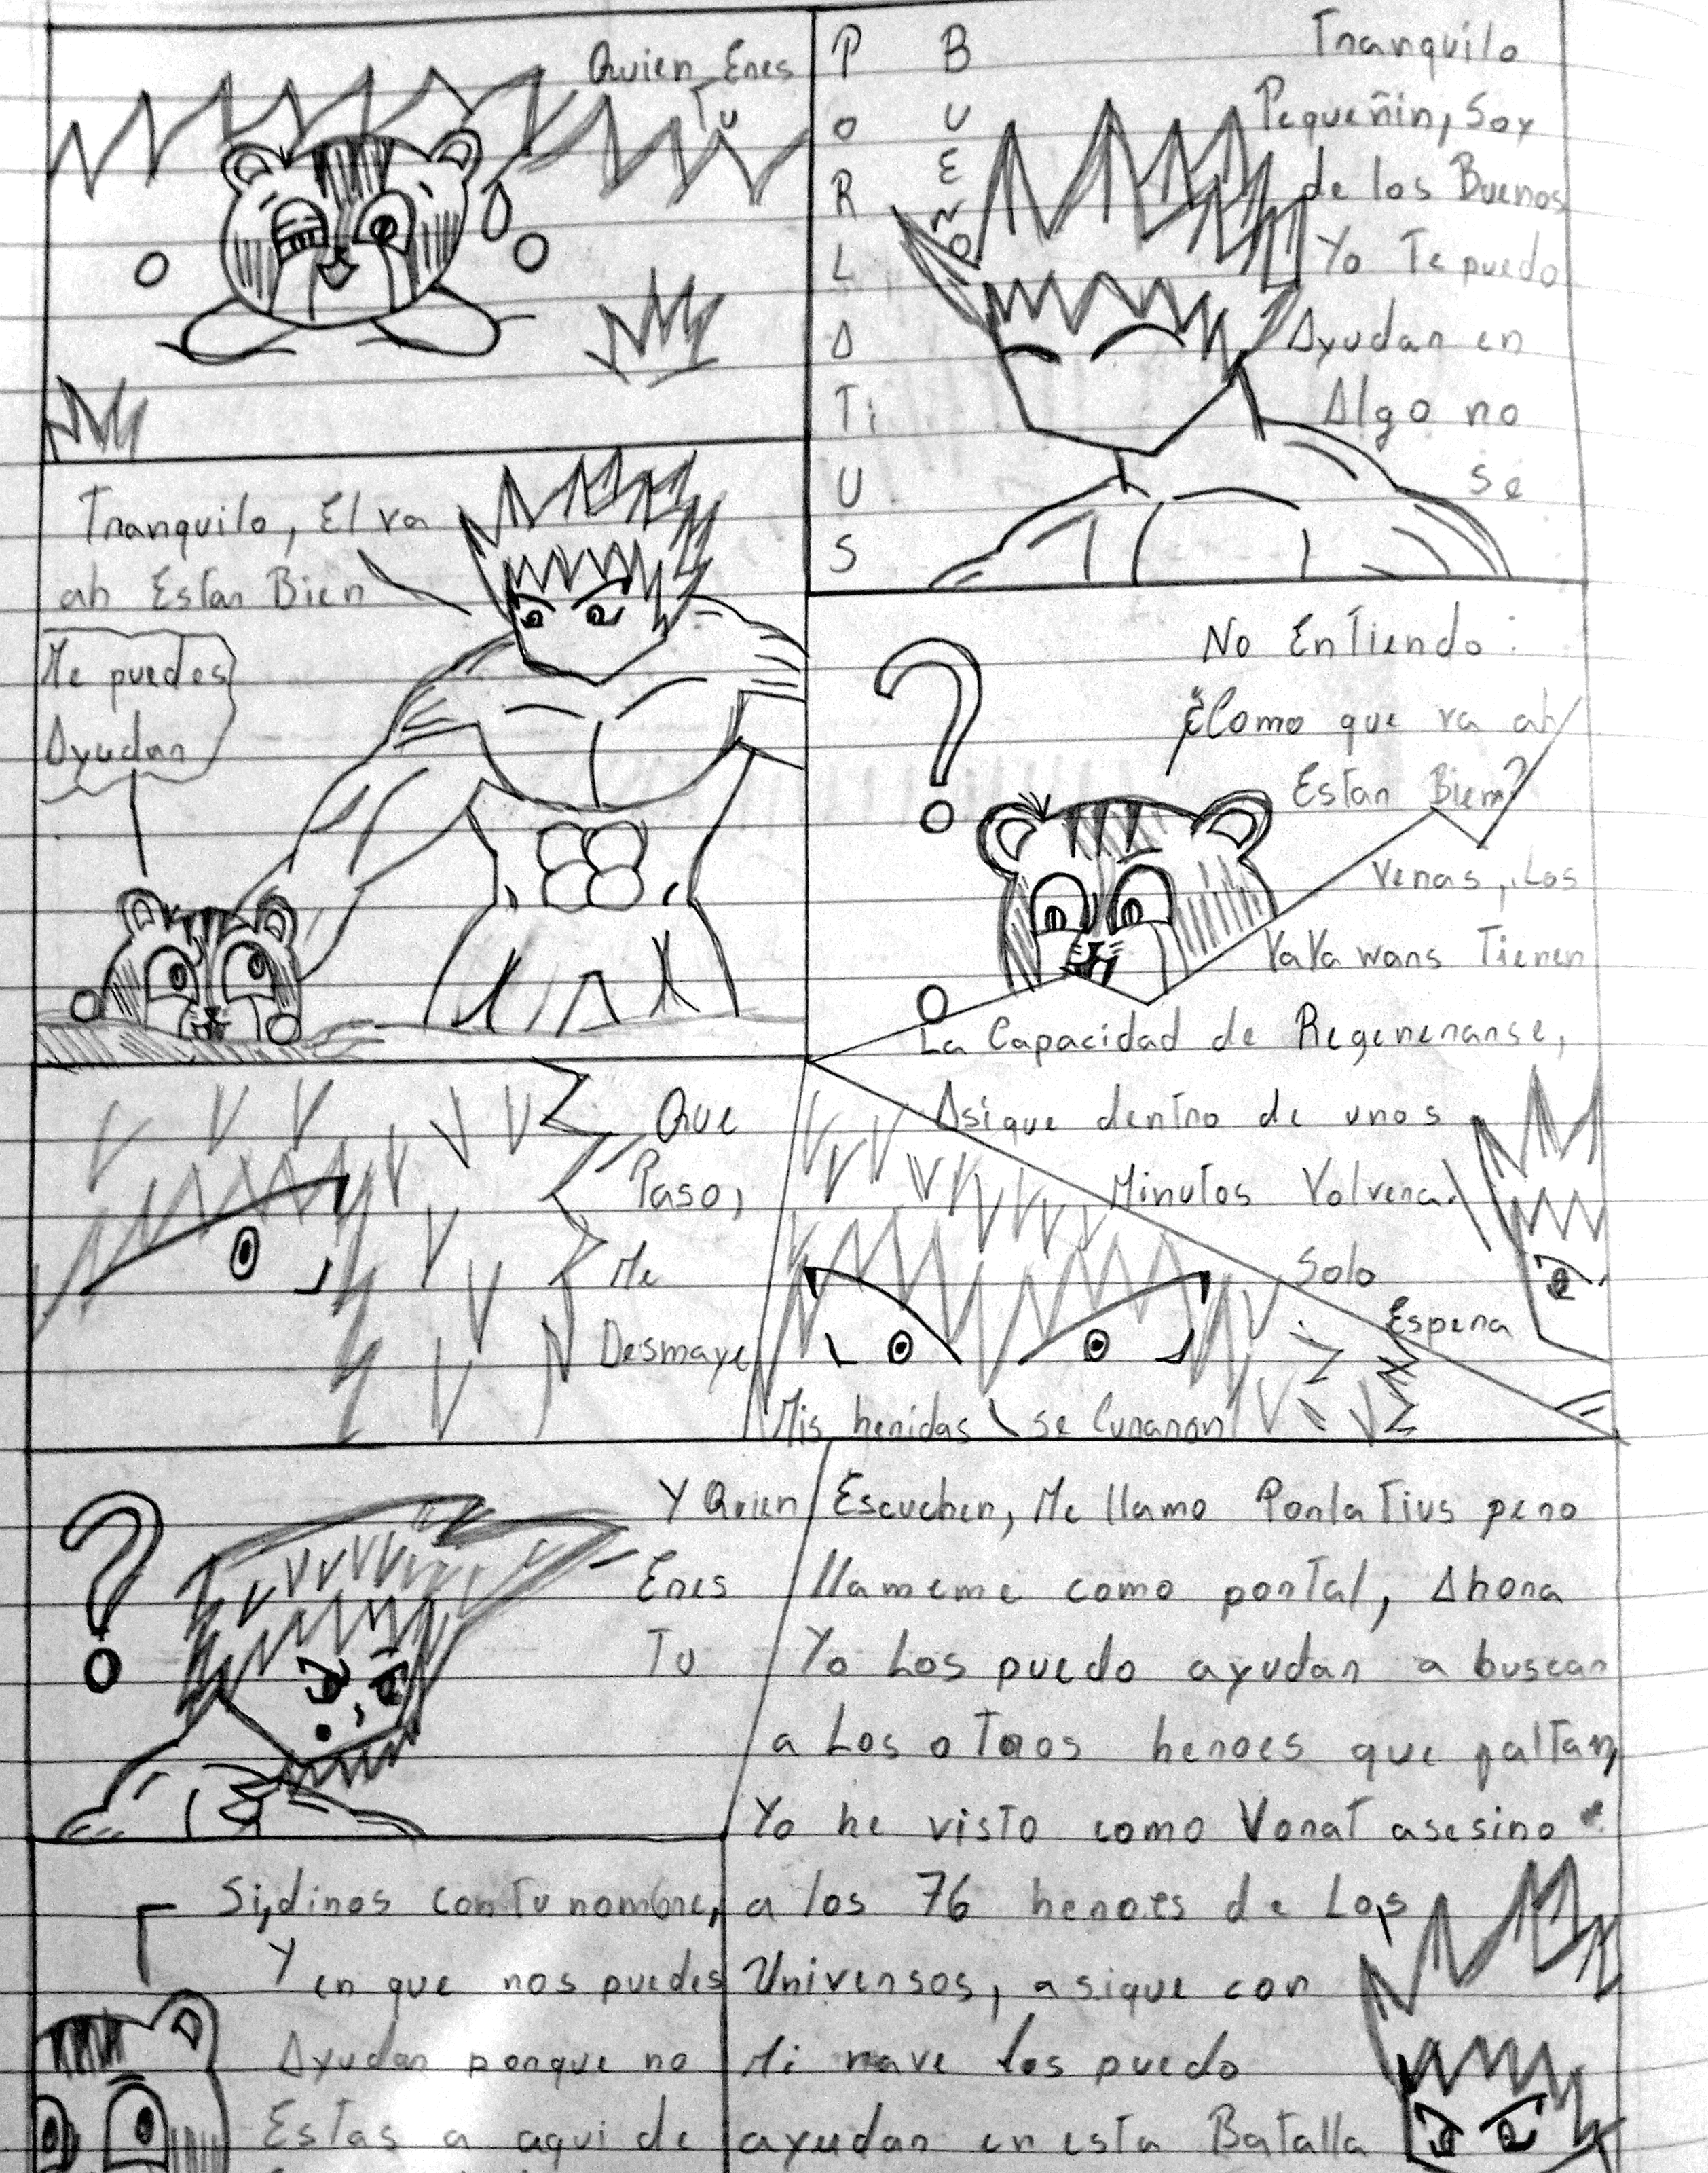 Quien Eres
Tu
PORLATiUS
BUENO
Tranquilo
Pequeñin, Soy
de los Buenos
Yo Te puedo
Ayudar en
Algo no
se
Tranquilo, El va
ah Estar Bien
Me puedes
Ayudar
No Entiendo:
¿Como que va ah
Estar Bien?
Veras, Los
YaYawans Tienen
La Capacidad de Regenerarse,
Asique dentro de unos
Minutos Volvera.
Solo
Espera
Que
Paso,
Me
Desmaye
Mis heridas se Curaron
Y Quien
Eres
Tu
Escuchen, Me llamo Porlatius pero
llameme como portal, Ahora
Yo Los puedo ayudar a buscar
a Los otros heroes que faltan,
Yo he visto como Vorat asesino
a los 76 heroes de Los
Universos, asique con
Mi nave los puedo
ayudar en esta Batalla
Si, dinos con tu nombre,
Y en que nos puedes
Ayudar porque no
Estas a aqui de